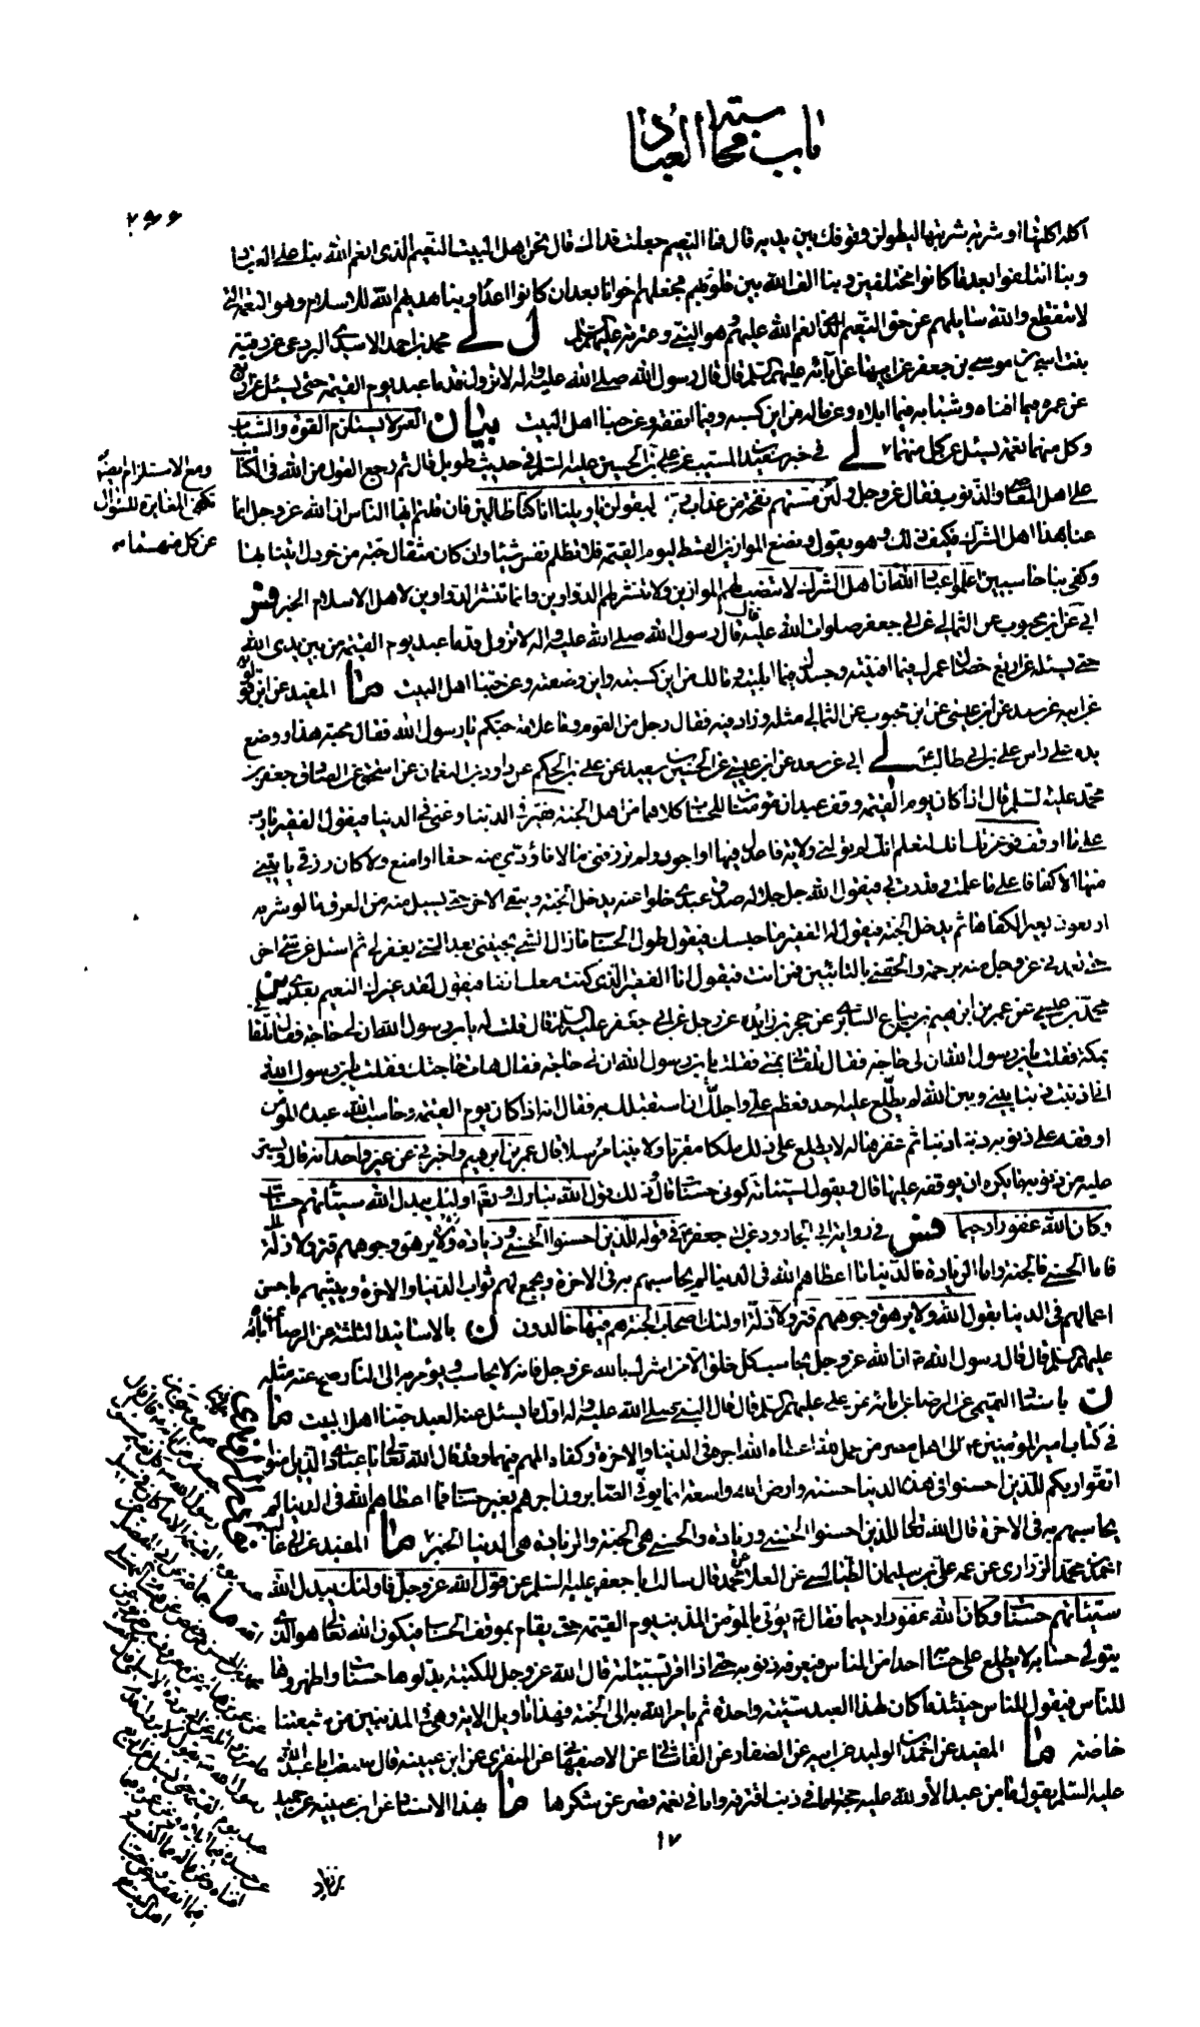 باب محاسبة العباد
٢٦٦
اكلة اكلتها او شربة شربتها ليطولن وقوفك بين يديه قال فما النعيم جعلت فداك قال نحن اهل البيت النعيم الذى انعم الله بنا على العباد
وبنا ائتلفوا بعد ما كانوا مختلفين وبنا الف الله بين قلوبهم فجعلهم اخوانا بعد ان كانوا اعداء وبنا هديهم الله للاسلام وهو النعمة التى
لا تنقطع والله سايلهم عن حق النعيم الذى انعم الله عليهم وهو النبى وعترته عليهم السلم ل لى محمد بن احمد الاسدى البردعى عن رقية
بنت اسحق بن موسى بن جعفر عن ابيها عن آبائه عليهم السلم قال قال رسول الله صلى الله عليه واله لا تزول قدما عبد يوم القيمة حتى يسئل عن اربع
عن عمره فيما افناه وشبابه فيما ابلاه وعن ماله من اين كسبه وفيما انفقه وعن حبنا اهل البيت بيان العمر لا يستلزم القوة والشباب
وكل منهما نعمة يسئل عن كل منهما لى فى خبر سعيد بن المسيب عن على بن الحسين عليه السلم فى حديث طويل قال ثم رجع القول من الله فى الكتاب
ومع الاستلزام ايضا
تكفى المغايرة للسؤال
عن كل منهما منه
على اهل المعاصى والذنوب فقال عز وجل ولئن مستهم نفحة من عذاب ربك ليقولن يا ويلنا انا كنا ظالمين فان قلتم ايها الناس ان الله عز وجل انما
عنا بهذا اهل الشرك فكيف ذلك وهو يقول ونضع الموازين القسط ليوم القيمة فلا تظلم نفس شيئا وان كان مثقال حبة من خردل اتينا بها
وكفى بنا حاسبين اعلموا عباد الله ان اهل الشرك لا تنصب لهم الموازين ولا تنشر لهم الدواوين وانما تنشر الدواوين لاهل الاسلام الخبر فس
ابى عن ابن محبوب عن الثمالى عن ابى جعفر صلوات الله عليه قال قال رسول الله صلى الله عليه واله لا تزول قدما عبد يوم القيمة من بين يدى الله
حتى يسئله عن اربع خصال عمرك فيما افنيته وجسدك فيما ابليته ومالك من اين كسبته واين وضعته وعن حبنا اهل البيت ما المفيد عن ابن قولويه
عن ابيه عن سعد عن ابن عيسى عن ابن محبوب عن الثمالى مثله وزاد فيه فقال رجل من القوم وما علامة حبكم يا رسول الله فقال محبة هذا ووضع
يده على راس على بن ابى طالب ع لى ابى عن سعد عن ابن عيسى عن الحسين بن سعيد عن على بن الحكم عن داود بن النعمان عن اسحق عن الصادق جعفر بن
محمد عليه السلم قال اذا كان يوم القيمة وقف عبدان مؤمنان للحساب كلاهما من اهل الجنة فقير فى الدنيا وغنى فى الدنيا فيقول الفقير يا رب
على ما اوقف فوعزتك انك لتعلم انك لم تولنى ولاية فاعدل فيها او اجور ولم ترزقنى مالا فاؤدى منه حقا او امنع ولا كان رزقى ياتينى
منها الا كفافا على ما علمت وقدرت لى فيقول الله جل جلاله صدق عبدى خلوا عنه يدخل الجنة ويبقى الاخر حتى يسيل منه من العرق ما لو شربه
اربعون بعيرا لكفاها ثم يدخل الجنة فيقول له الفقير ما حبسك فيقول طول الحساب ما زال الشىء يجيئنى بعد الشىء يغفر لى ثم اسئل عن شىء اخر
حتى تغمدنى عز وجل منه برحمة والحقنى بالتائبين فمن انت فيقول انا الفقير الذى كنت معك انفا فيقول لقد غيرك النعيم بعدى ين
محمد بن عيسى عن عمر بن ابراهيم بياع السابرى عن حجر بن زايدة عن رجل عن ابى جعفر عليه السلم قال قلت له يا بن رسول الله ان لى حاجة فقال تلقانى
بمكة فقلت يا بن رسول الله ان لى حاجة فقال تلقانى بمنى فقلت يا بن رسول الله ان لى حاجة فقال هات حاجتك فقلت يا بن رسول الله
انى اذنبت ذنبا بينى وبين الله لم يطلع عليه احد فعظم على واجلك ان استقبلك به فقال انه اذا كان يوم القيمة وحاسب الله عبده المؤمن
اوقفه على ذنوبه ذنبا ذنبا ثم غفرها له لا يطلع على ذلك ملكا مقربا ولا نبيا مرسلا قال عمر بن ابراهيم واخبرنى عن غير واحد انه قال ويستر
عليه من ذنوبه ما يكره ان يوقفه عليها قال ويقول لسيئاته كونى حسنات قال وذلك قول الله تبارك وتعالى اولئك يبدل الله سيئاتهم حسنات
وكان الله غفورا رحيما فس فى رواية ابى الجارود عن ابى جعفر ع فى قوله للذين احسنوا الحسنى وزيادة ولا يرهق وجوههم قتر ولا ذلة
فاما الحسنى فالجنة واما الزيادة فالدنيا ما اعطاهم الله فى الدنيا لم يحاسبهم به فى الاخرة ويجمع لهم ثواب الدنيا والاخرة ويثيبهم باحسن
اعمالهم فى الدنيا يقول الله ولا يرهق وجوههم قتر ولا ذلة اولئك اصحاب الجنة هم فيها خالدون ن بالاسانيد الثلثة عن الرضا عن آبائه
عليهم السلم قال قال رسول الله ص ان الله عز وجل يحاسب كل خلق الا من اشرك بالله عز وجل فانه لا يحاسب ويؤمر به الى النار صح عنه مثله
ن باسناد التميمى عن الرضا عن آبائه عن على عليهم السلم قال قال النبى صلى الله عليه واله اول ما يسئل عنه العبد حبنا اهل البيت ما
فى كتاب امير المؤمنين ع الى اهل مصر من عمل لله اعطاه الله اجره فى الدنيا والاخرة وكفاه المهم فيهما وقد قال الله تعالى يا عبادى الذين امنوا
اتقوا ربكم للذين احسنوا فى هذه الدنيا حسنة وارض الله واسعة انما يوفى الصابرون اجرهم بغير حساب فما اعطاهم الله فى الدنيا لم
يحاسبهم به فى الاخرة قال الله تعالى للذين احسنوا الحسنى وزيادة والحسنى هى الجنة والزيادة هى الدنيا الخبر ما المفيد عن ابى غالب
احمد بن محمد الزرارى عن عمه على بن سليمان عن الطيالسى عن العلا عن محمد قال سالت ابا جعفر عليه السلم عن قول الله عز وجل فاولئك يبدل الله
سيئاتهم حسنات وكان الله غفورا رحيما فقال ع يؤتى بالمؤمن المذنب يوم القيمة حتى يقام بموقف الحساب فيكون الله تعالى هو الذى
يتولى حسابه لا يطلع على حسابه احدا من الناس فيعرفه ذنوبه حتى اذا اقر بسيئاته قال الله عز وجل للكتبة بدلوها حسنات واظهروها
للناس فيقول الناس حينئذ ما كان لهذا العبد سيئة واحدة ثم يامر الله به الى الجنة فهذا تاويل الاية وهى فى المذنبين من شيعتنا
خاصة ما المفيد عن احمد بن الوليد عن ابيه عن الصفار عن القاشانى عن الاصفهانى عن المنقرى عن ابن عيينة قال سمعت ابا عبد الله
عليه السلم يقول ما من عبد الا ولله عليه حجة اما فى ذنب اقترفه واما فى نعمة قصر عن شكرها ما بهذا الاسناد عن ابن عيينة عن حميد
١٧
بن زياد